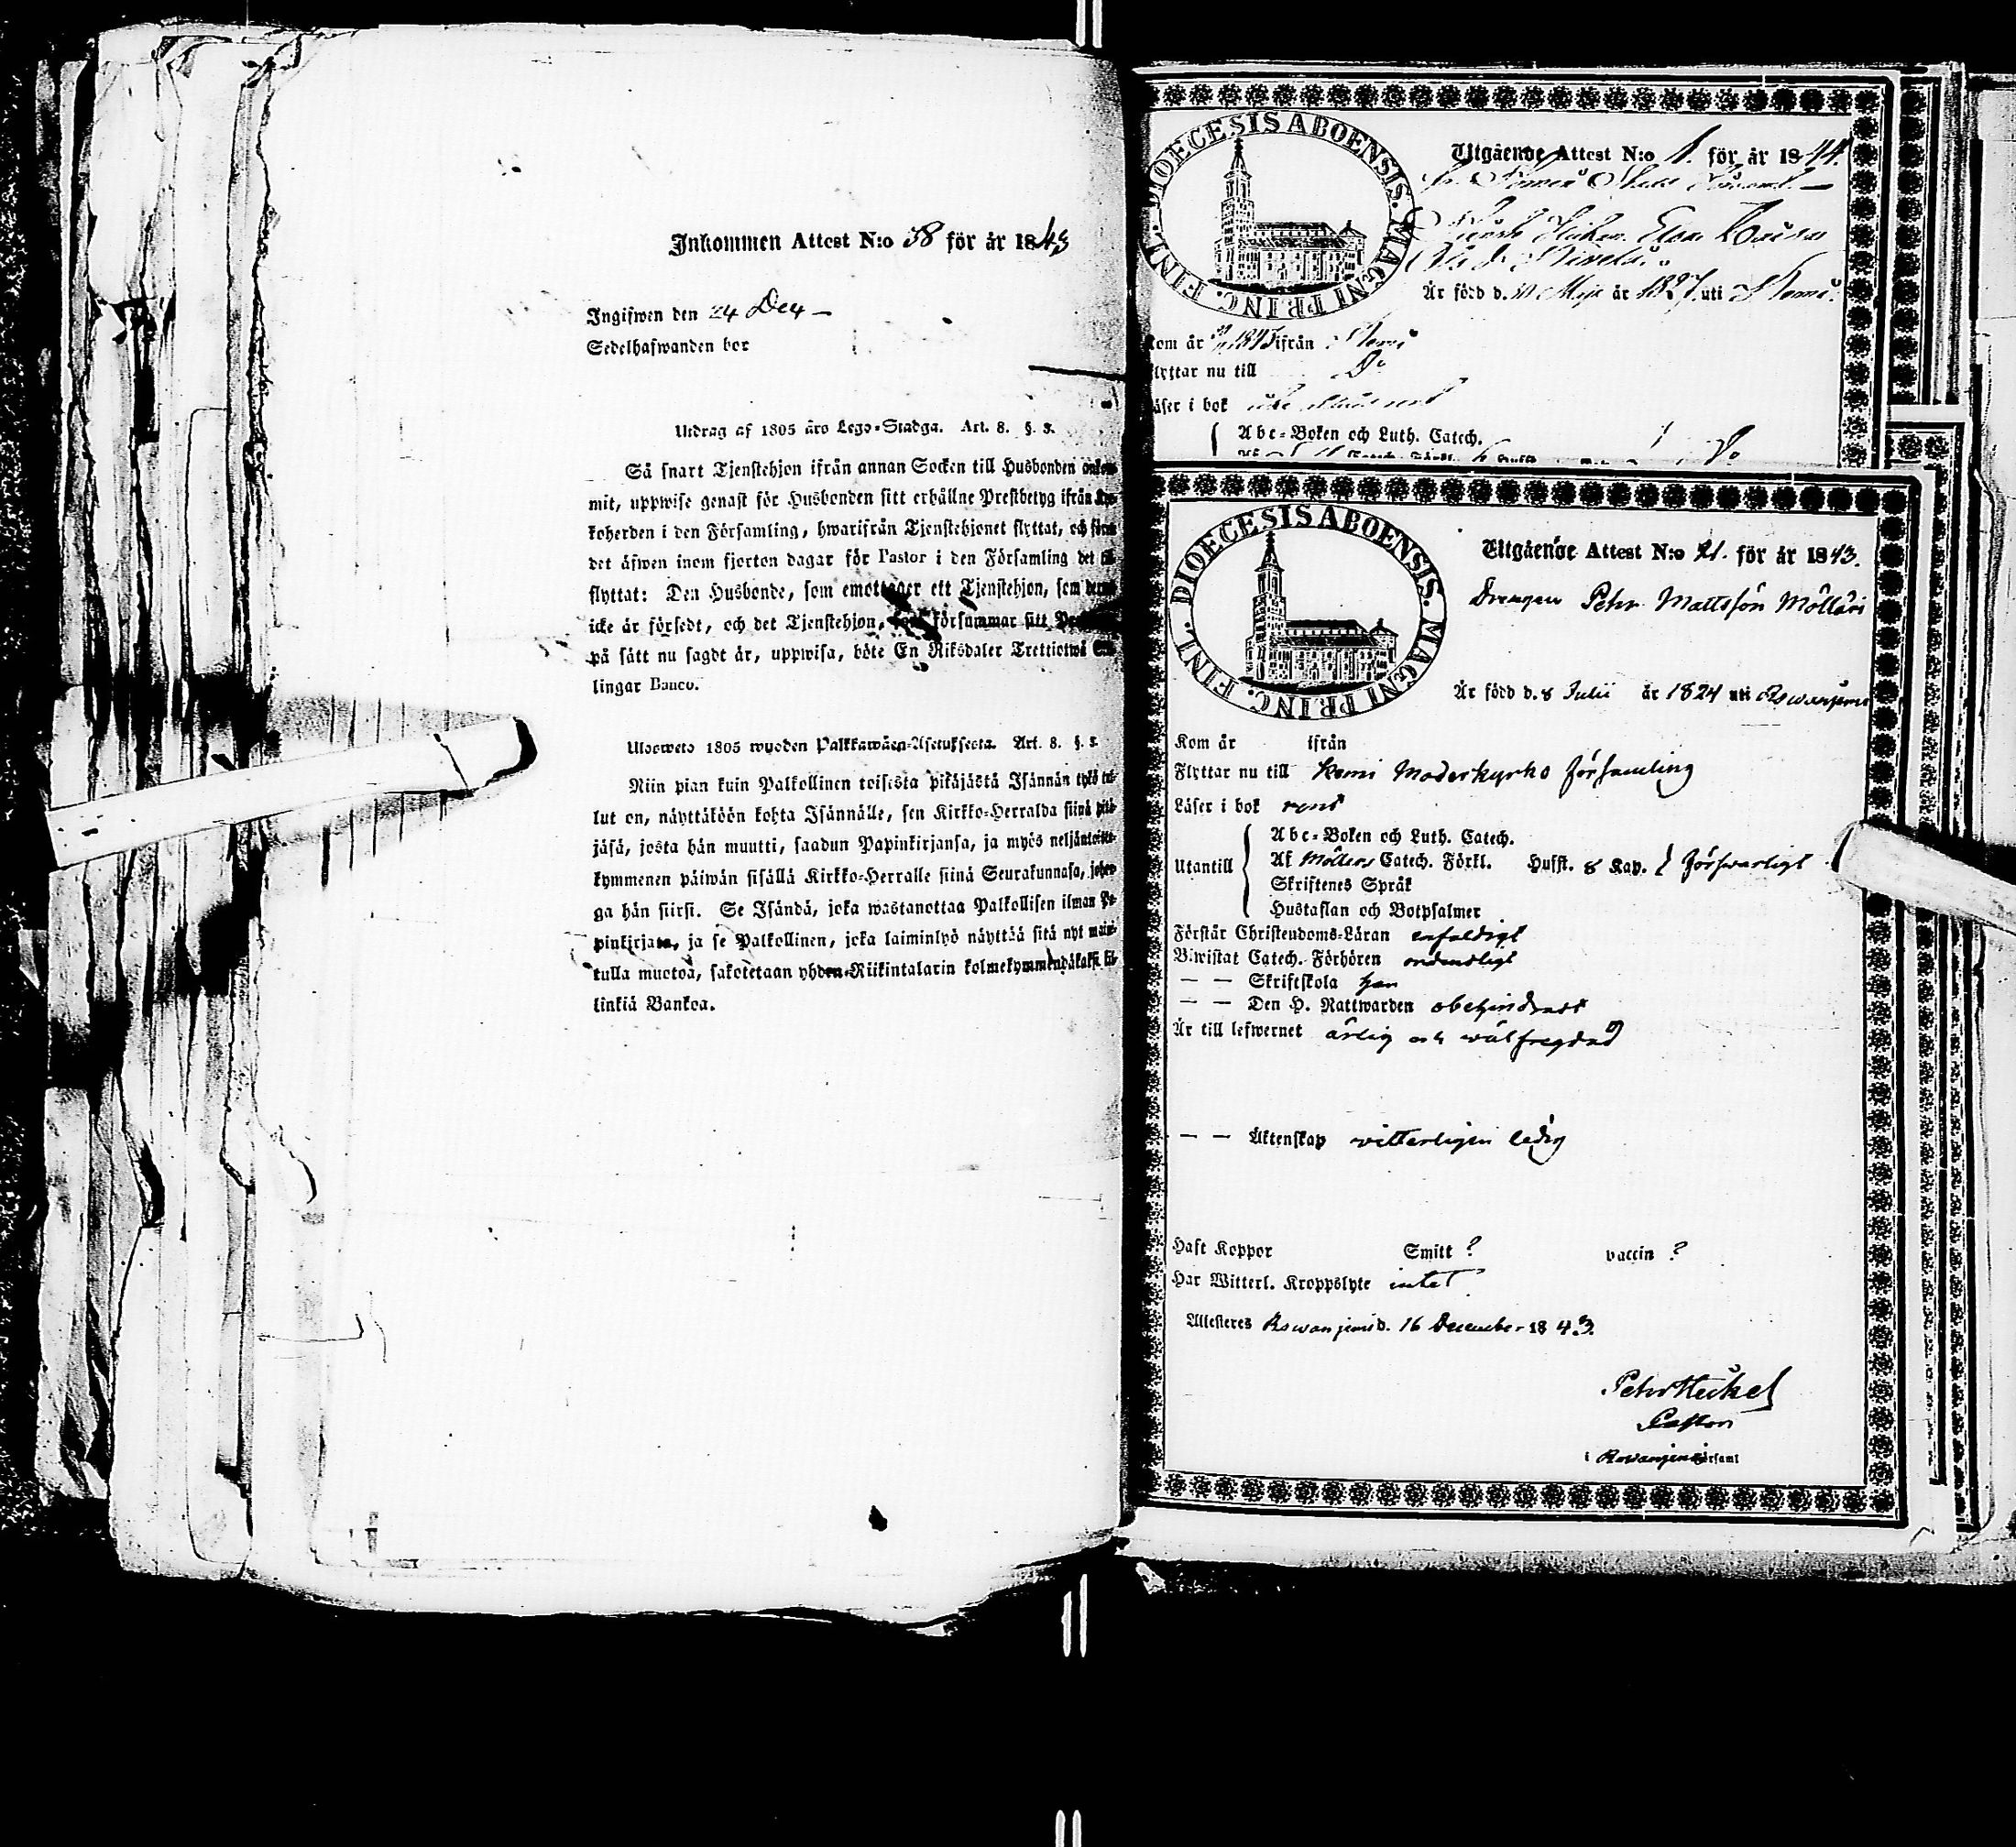 Inkommen Attest N:o 38 för år 1843
Ingifwen den 24 Dec –
Sedelhafwanden bor
Utdrag af 1805 års Lego-Stadga. Art. 8. §. 3.
Så snart Tjenstehjon ifrån annan Socken till Husbonden
mit, uppwise genast för Husbonden sitt erhållne Prestbetyg ifrån
koherden i den Församling, hwarifrån Tjenstehjonet flyttat, och
det äfwen inom fjorton dagar för Pastor i den Församling det
flyttat: Den Husbonde, som emottager ett Tjenstehjon, som
icke är försedt, och det Tjenstehjon, som försummar sitt
på sätt nu sagdt är, uppwisa, böte En Riksdaler Trettiotwå
lingar Banco.
Ulosweto 1805 wuoden Palkkawäen-Asetuksesta. Art. 8. §. 3.
Niin pian kuin Palkollinen toisesta pitäjästä Isännän tykö
lut on, näyttäköön kohta Isännälle, sen Kirkko-Herralda siinä
jäsä, josta hän muutti, saadun Papinkirjansa, ja myös
kymmenen päiwän sisällä Kirkko-Herralle siinä Seurakunnasa,
ga hän siirsi. Se Isändä, joka wastanottaa Palkollisen ilman
pinkirjata, ja se Palkollinen, joka laiminlyö näyttää sitä nyt
tulla muotoa, sakotetaan yhden Riikintalarin kolmekymmendäkaksi
linkiä Bankoa.
DIOECESIS ABOENSIS. MAGNI PRINC. FINL.
Utgående Attest N:o 1. för år 1844.
Är född d. Maji år 1827 uti
Kom år 1843 ifrån
Flyttar nu till Do
Läser i bok
Abc-Boken och Luth. Catech.
DIOECESIS ABOENSIS. MAGNI PRINC. FINL.
Utgående Attest N:o 21. för år 1843.
Drengen Pehr Mattsson Mölläri
Är född d. 8 Julii år 1824 uti Rowanjemi
Kom år ifrån
Flyttar nu till Kemi Moderkyrko församling
Läser i bok rent
Abc-Boken och Luth. Catech.
Utantill Af Möllers Catech. Förkl. Hufst. 8 Kap. förswarligt
Skriftenes Språk
Hustaflan och Botpsalmer
Förstår Christendoms-Läran enfaldigt
Biwistat Catech. Förhören ordentligt
— — Skriftskola han
— — Den H. Nattwarden obehindradt
Är till lefwernet ärlig och wälfregdad
— — Äktenskap witterligen ledig
Haft Koppor Smitt ? vaccin ?
Har Witterl. Kroppslyte intet
Attesteres Rowanjemi d. 16 December 1843.
Pehr Heickel
Pastor
i Rowanjemi församl